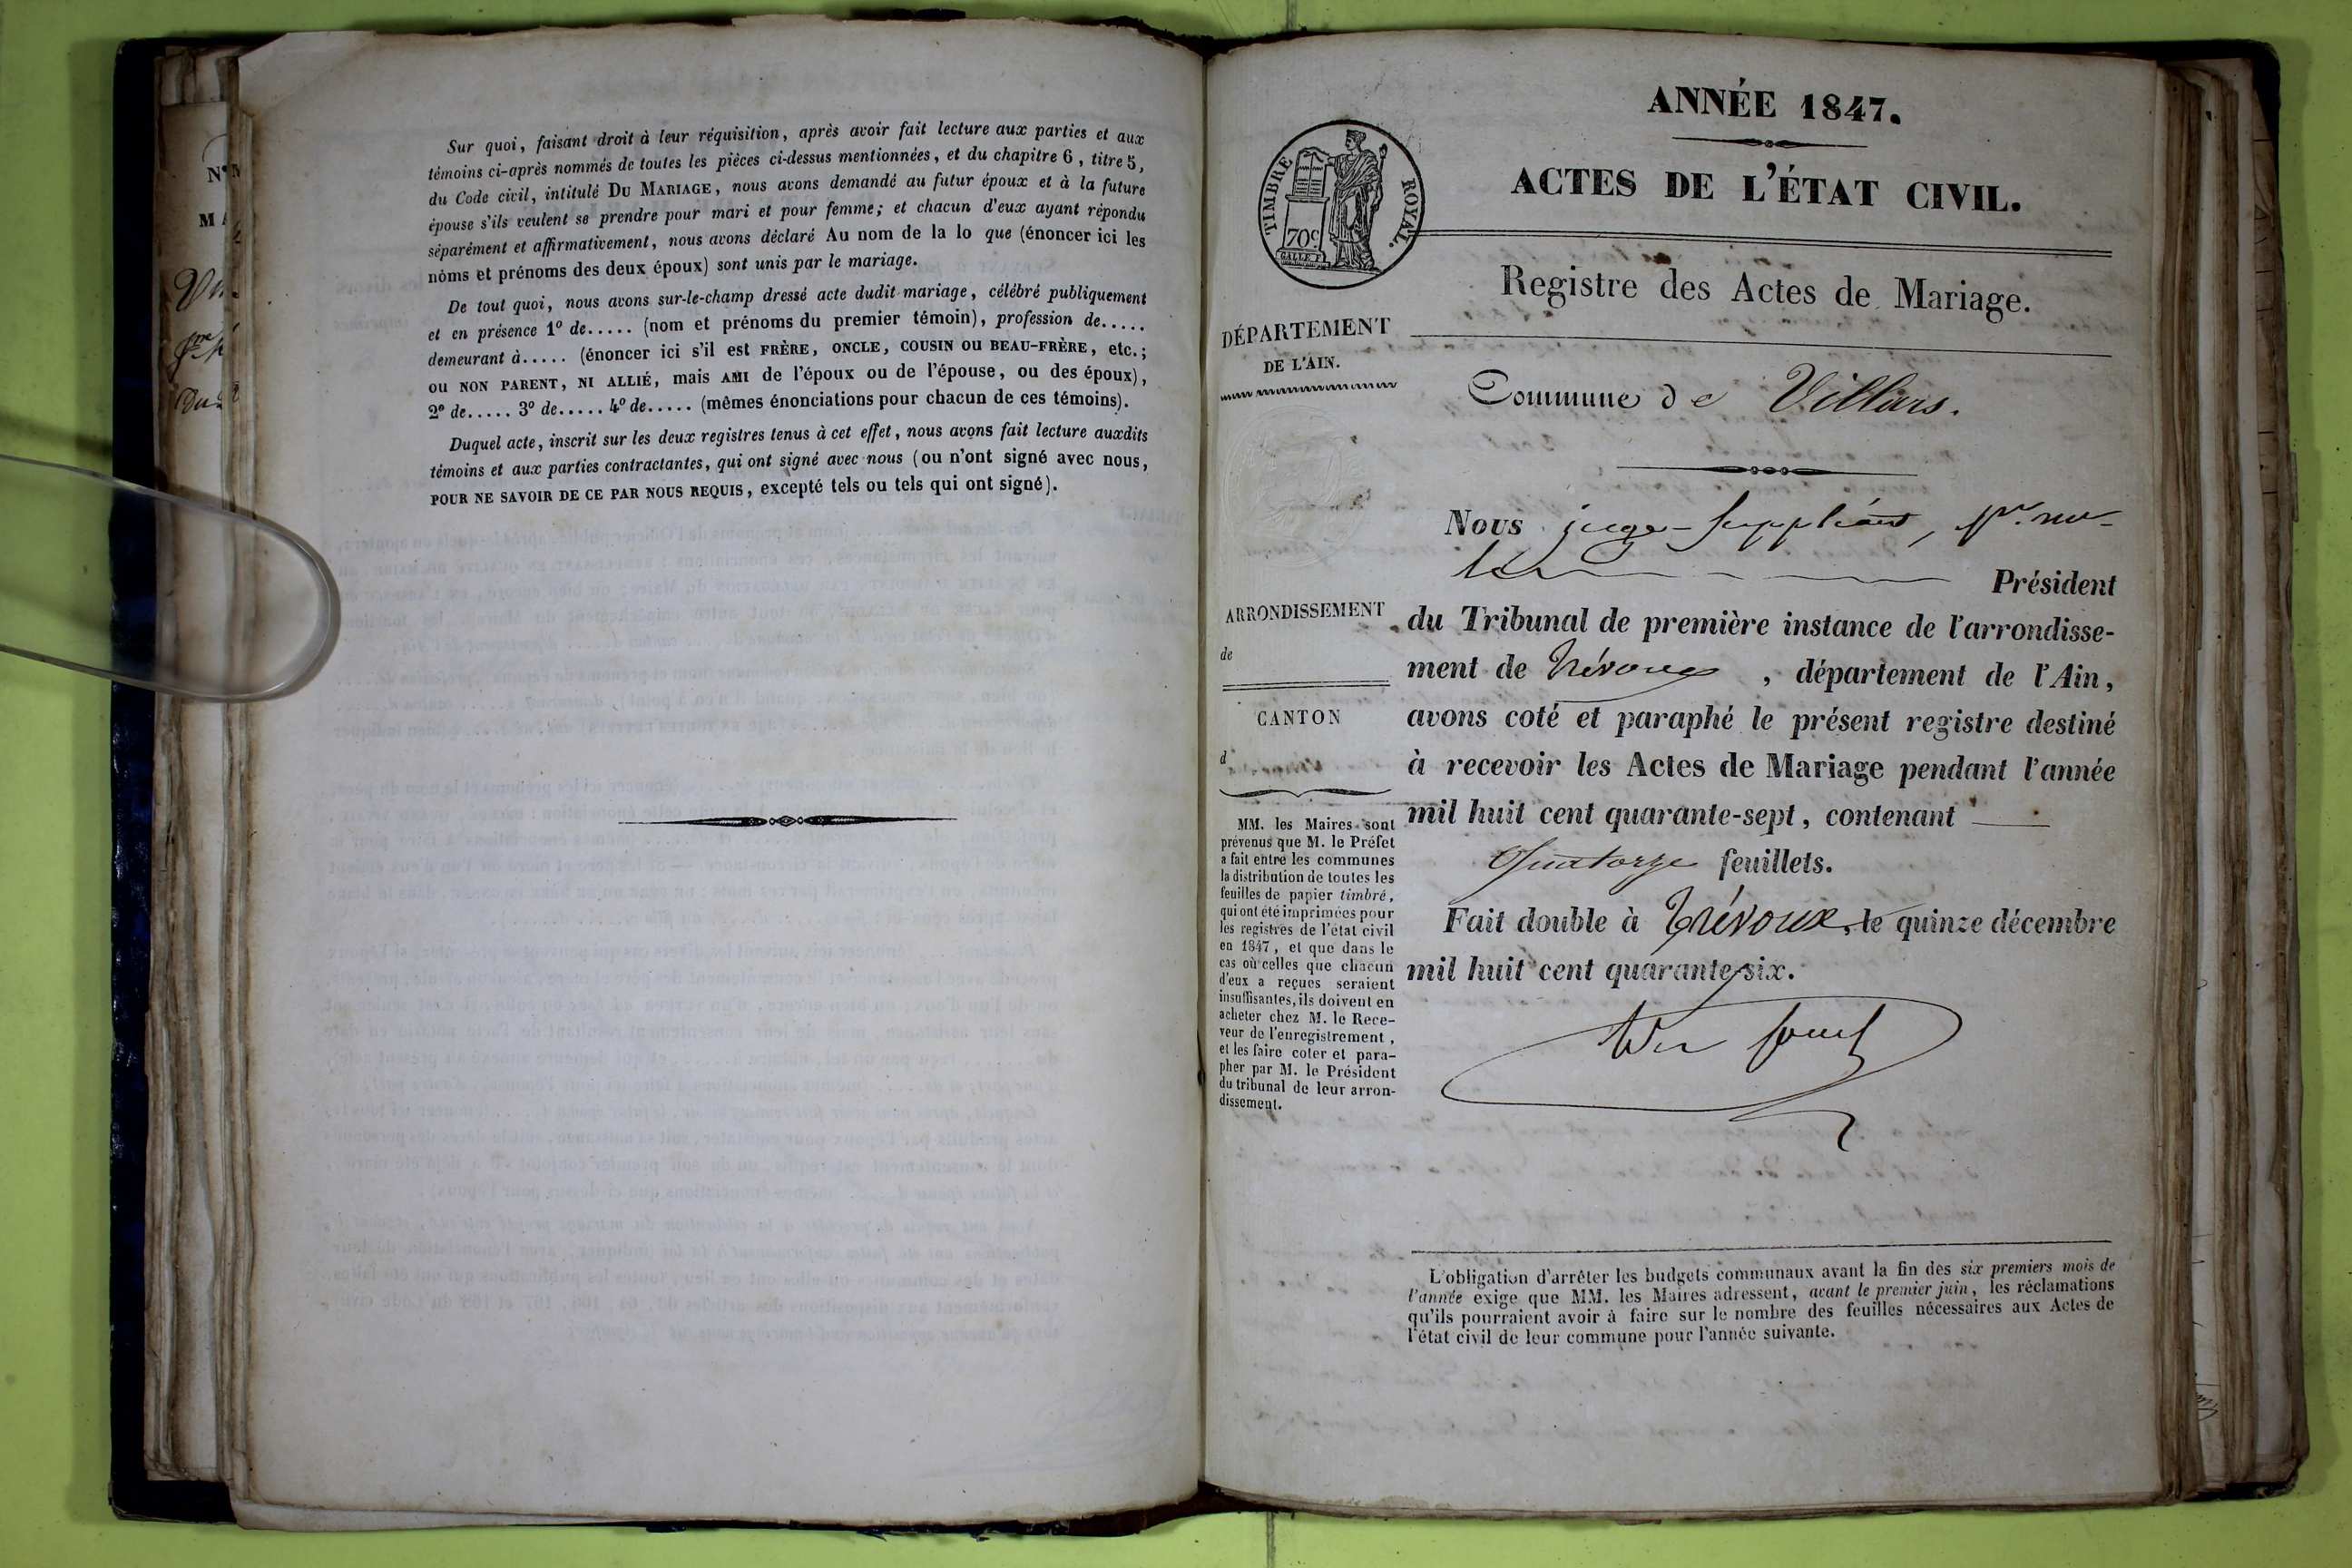 Sur quoi, faisant droit à leur réquisition, après avoir fait lecture aux parties et aux
témoins ci-après nommés de toutes les pièces ci-dessus mentionnées, et du chapitre 6, titre 5,
du Code civil, intitulé DU MARIAGE, nous avons demandé au futur époux et à la future
épouse s'ils veulent se prendre pour mari et pour femme; et chacun d'eux ayant répondu
séparément et affirmativement, nous avons déclaré Au nom de la lo que (énoncer ici les
noms et prénoms des deux époux) sont unis par le mariage.
De tout quoi, nous avons sur-le-champ dressé acte dudit mariage, célébré publiquement
et en présence 1º de..... (nom et prénoms du premier témoin), profession de.....
demeurant à..... (énoncer ici s'il est FRÈRE, ONCLE, COUSIN OU BEAU-FRÈRE, etc.;
OU NON PARENT, NI ALLIÉ, mais AMI de l'époux ou de l'épouse, ou des époux),
2º de..... 3º de..... 4º de..... (mêmes énonciations pour chacun de ces témoins).
Duquel acte, inscrit sur les deux registres tenus à cet effet, nous avons fait lecture auxdits
témoins et aux parties contractantes, qui ont signé avec nous (ou n'ont signé avec nous,
POUR NE SAVOIR DE CE PAR NOUS REQUIS, excepté tels ou tels qui ont signé).
ANNÉE 1847.
TIMBRE ROYAL.
70c
GALLE F.
ACTES DE L'ÉTAT CIVIL.
Registre des Actes de Mariage.
DÉPARTEMENT
DE L'AIN.
Commune de Villars.
Nous juge-suppléant,
Président
ARRONDISSEMENT
de
CANTON
d
du Tribunal de première instance de l'arrondisse-
ment de Trévoux, département de l'Ain,
avons coté et paraphé le présent registre destiné
à recevoir les Actes de Mariage pendant l'année
mil huit cent quarante-sept, contenant
Quatorze feuillets.
Fait double à Trévoux, le quinze décembre
mil huit cent quarante-six.
MM. les Maires sont
prévenus que M. le Préfet
a fait entre les communes
la distribution de toutes les
feuilles de papier timbré,
qui ont été imprimées pour
les registres de l'état civil
en 1847, et que dans le
cas où celles que chacun
d'eux a reçues seraient
insuffisantes, ils doivent en
acheter chez M. le Rece-
veur de l'enregistrement,
et les faire coter et para-
pher par M. le Président
du tribunal de leur arron-
dissement.
L'obligation d'arrêter les budgets communaux avant la fin des six premiers mois de
l'année exige que MM. les Maires adressent, avant le premier juin, les réclamations
qu'ils pourraient avoir à faire sur le nombre des feuilles nécessaires aux Actes de
l'état civil de leur commune pour l'année suivante.